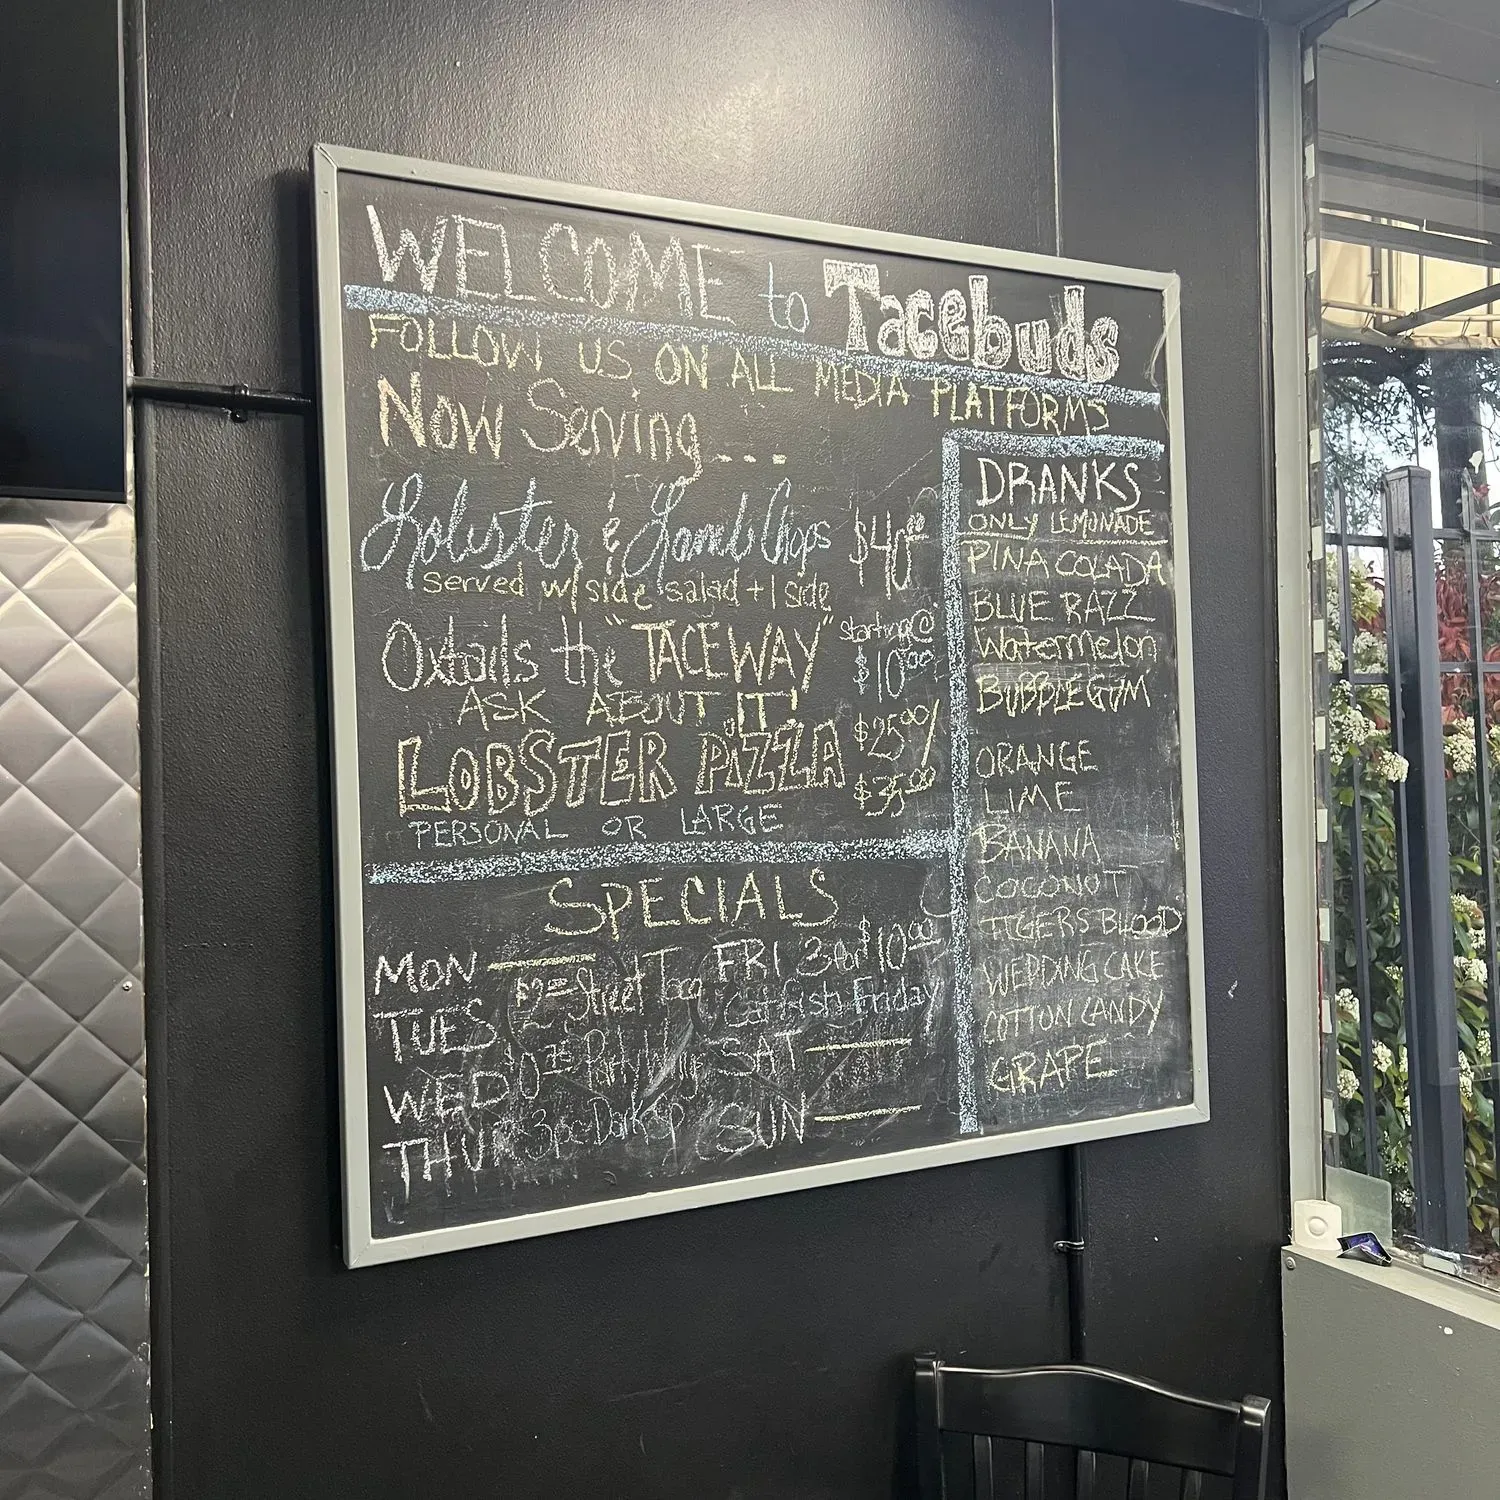 WELCOME to Tacebuds
FOLLOW US ON ALL MEDIA PLATFORMS
Now Serving...
Lobster & Lamb Chops $40.00
served w/ side salad + 1 side
Oxtails the "TACEWAY" starting @ $10.00
ASK ABOUT IT!
LOBSTER PIZZA $25.00/ $35.00
PERSONAL OR LARGE
SPECIALS
MON
TUES $2 Street Taco
WED
THUR 3pc
FRI 3 for $10.00
Catfish Friday
SAT
SUN
DRANKS
ONLY LEMONADE
PINA COLADA
BLUE RAZZ
Watermelon
BUBBLEGUM
ORANGE
LIME
BANANA
COCONUT
TIGERS BLOOD
WEDDING CAKE
COTTON CANDY
GRAPE